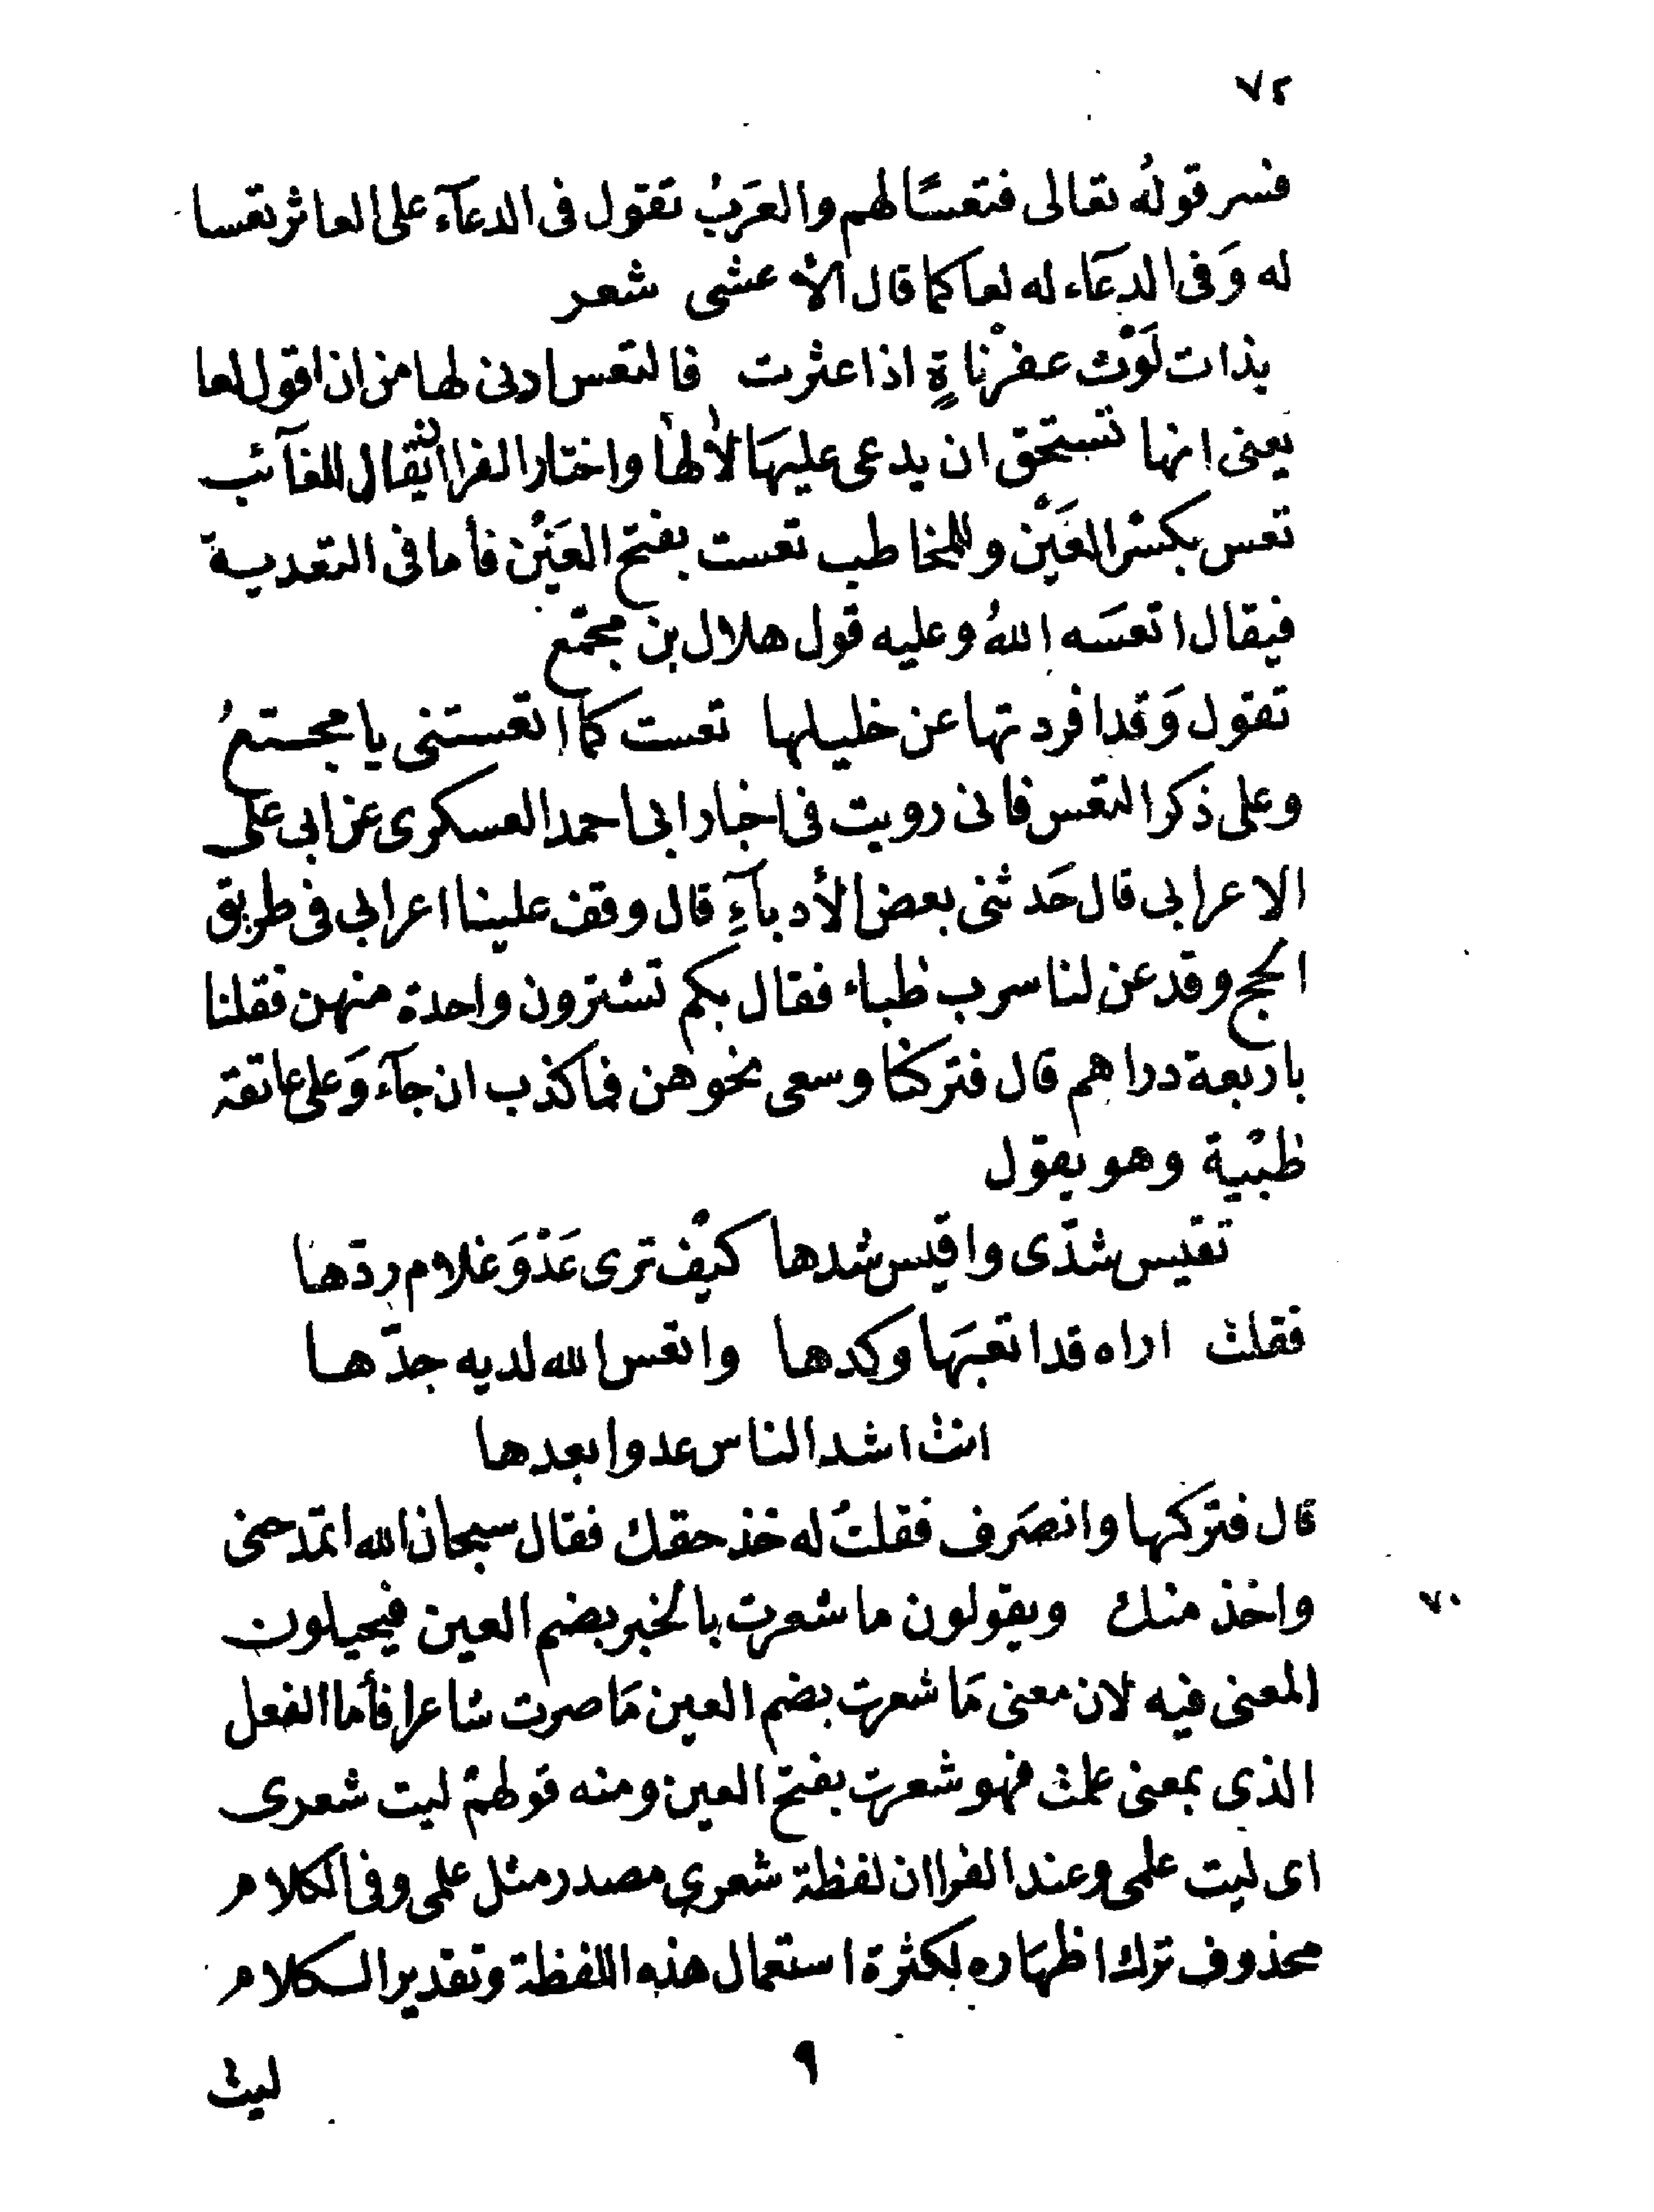 ٧٢
فسر قولُه تعالى فتعسًا لهم والعَرَبُ تقول فى الدعآء على العاثر تعسا
له وَفى الدعَاء له لعا كما قال الأعشى شعر
بذات لَوْث عفرْناةٍ اذا عثرت فالتعس ادنى لها من ان اقول لعا
يعنى انها تستحق ان يدعى عليهَا لأ لها واختار الفرا ان يقال للغآئب
تعس بكسْر العَيْن وللمخاطب تعست بفتح العَيْن فأما فى التعدية
فيقال اتعسَه اللهُ وعليه قول هلال بن مجمّع
تقول وَقد افردتها عن خليلها تعست كما اتعستنى يا مجمّعُ
وعلى ذكر التعس فانى رويت فى اخبار ابى احمد العسكرى عن ابى على
الاعرابى قال حَدثنى بعض الأدبآءِ قال وقف علينا اعرابى فى طريق
الحج وقد عن لنا سرب ظباء فقال بكم تشترون واحدة منهن فقلنا
باربعة دراهم قال فتركنا وسعى نحوهن فما كذب ان جآء وَعلى عاتقة
ظبْية وهو يقول
تقيس شدّى واقيس شدها كيْف ترى عَدْوَ غلام ردّها
فقلت اراه قد اتعبَها وكدها واتعس الله لديه جدّها
انت اشد الناس عدوا بعدها
قال فتركها وانصَرف فقلتُ له خذ حقك فقال سبحان الله اتمدحنى
واخذ منك ويقولون ما شعرت بالخبر بضم العين فيحيلون
٧٠
المعنى فيه لان معنى مَا شعرت بضم العين مَا صرت شاعرا فأما الفعل
الذى بمعنى علمت فهو شعرت بفتح العين ومنه قولهمْ ليت شعرى
اى ليت علمى وعند الفرا ان لفظة شعرى مصدر مثل علمى وفى الكلام
محذوف ترك اظهَاره لكثرة استعمال هذه اللفظة وتقدير الكلام
٩
ليت